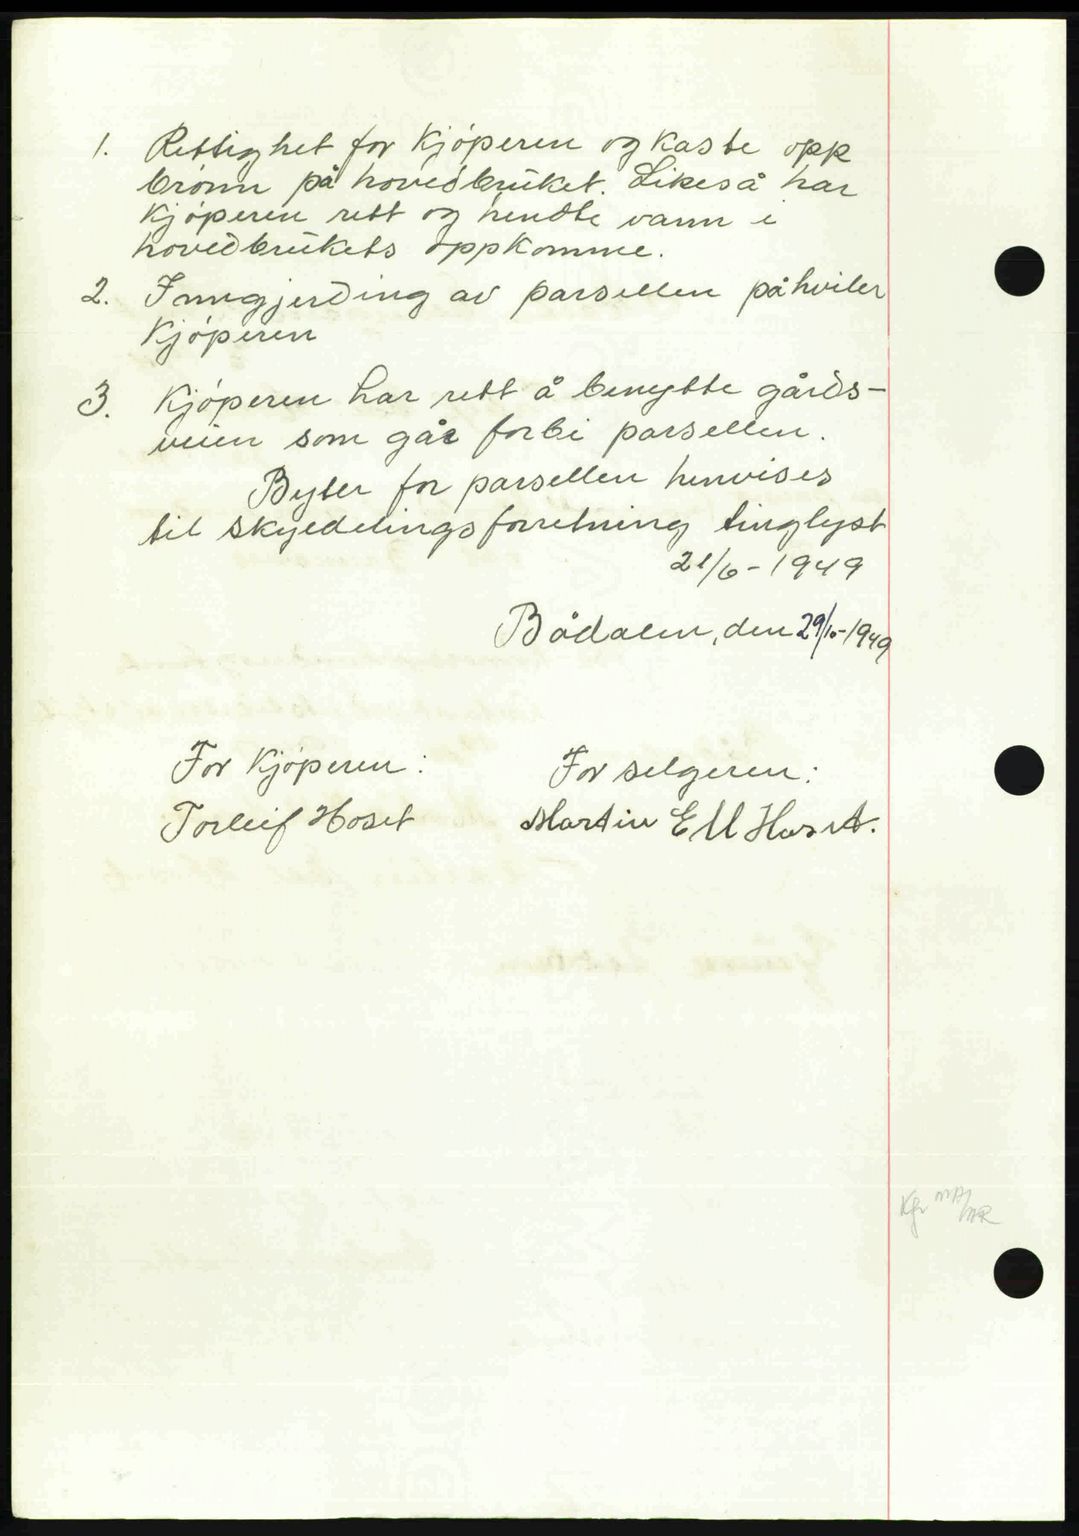 1. Rettighet for Kjøperen og kaste opp
brønn på hovedbruket. Likeså har
Kjøperen rett og hendte vann i
hovedbrukets oppkomme.
2. Inngjerding av parsellen påhviler
Kjøperen
3. Kjøperen har rett å benytte gårds-
veien som går forbi parsellen.
Byter for parsellen henvises
til skyldelingsforretning tinglyst
21/6-1949
Bådalen, den 29/10-1949
For Kjøperen:
For selgeren:
Torleif Hoset
Martin E M Hoset.
Kfr